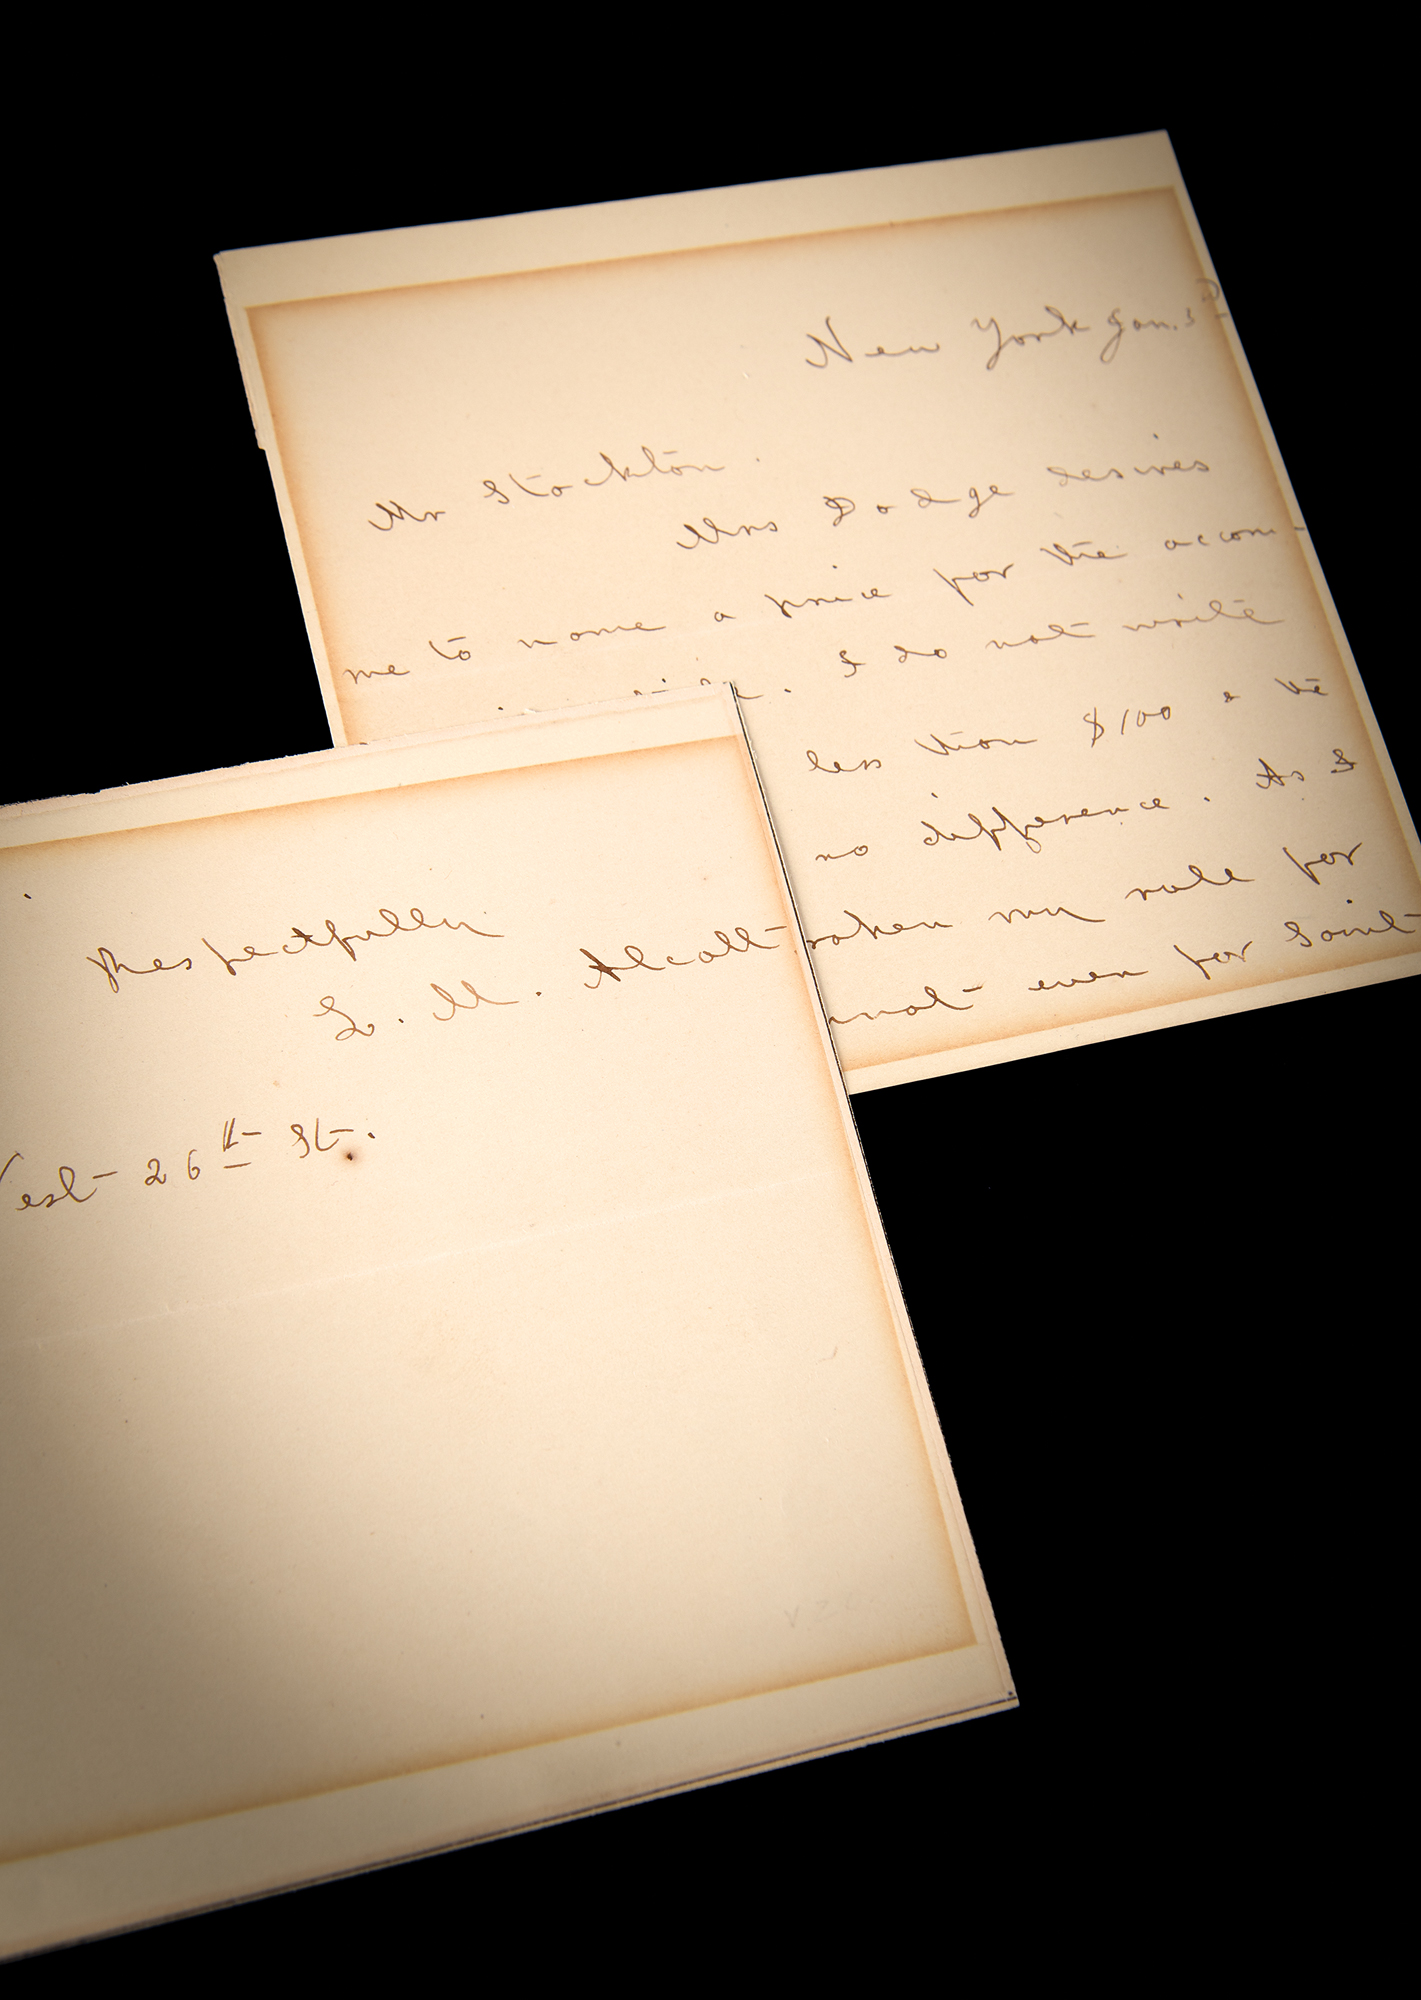 New York Jan. 3D
Mr Stockton.
Mrs Dodge desires
me to name a price for the accom-
. I do not write
less than $100 & the
no difference. As I
roken my rule for
nnot even for Saint
Respectfully
L. M. Alcott
West 26th St.